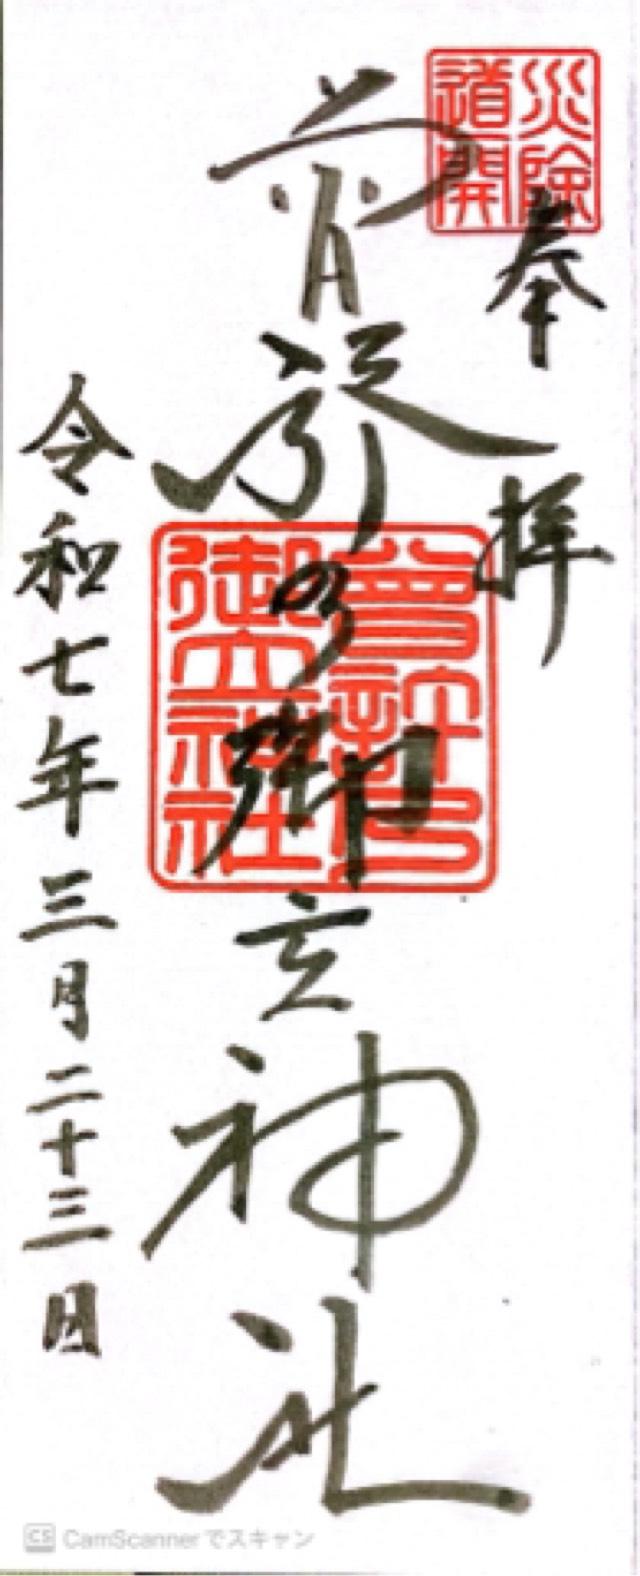 災除
道開
奉拝
曽許乃御立神社
曾許乃
御立神社
令和七年三月二十三日
CS CamScannerでスキャン